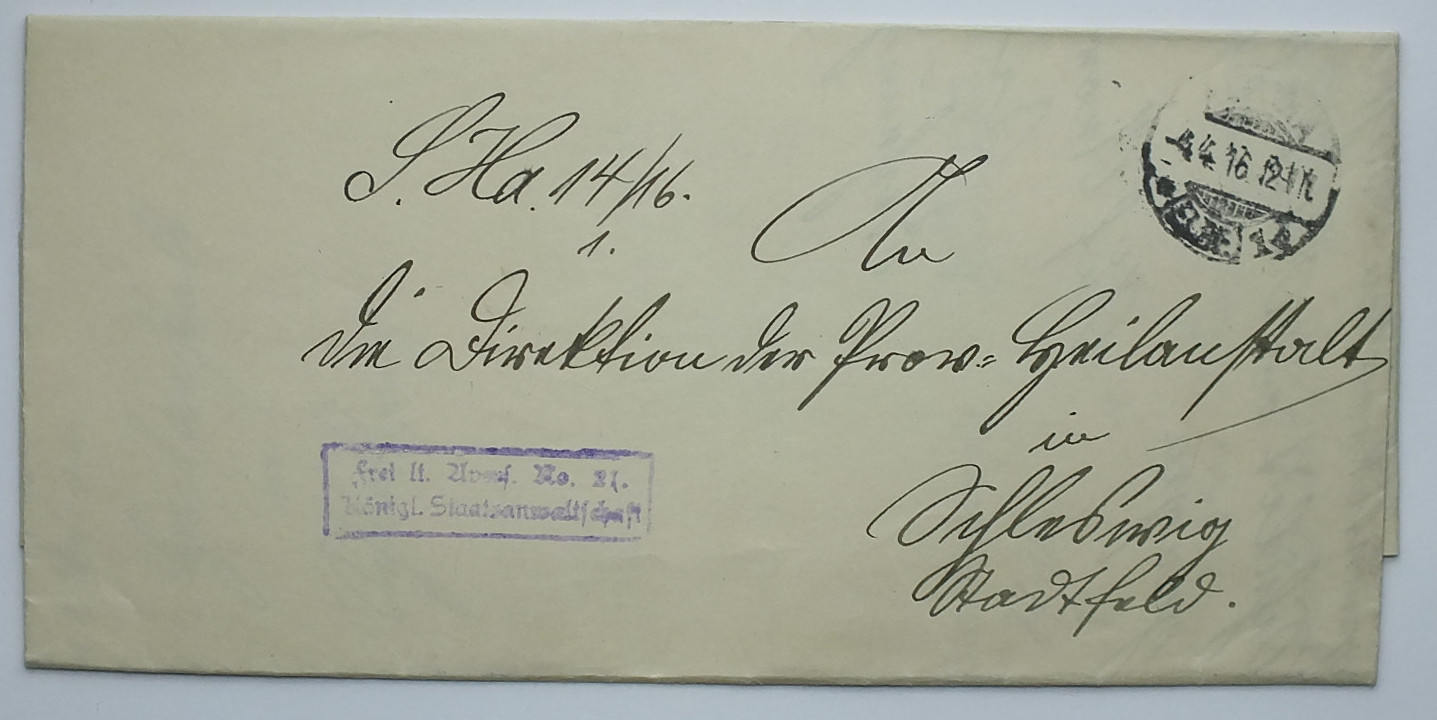 S. Ha. 14/16.
1.
An
die Direktion der Prov= Heilanstalt
in
Schleswig
Stadtfeld.
4.4.16. 12-1 N.
Frei lt. Avers. No. 21.
Königl. Staatsanwaltschaft